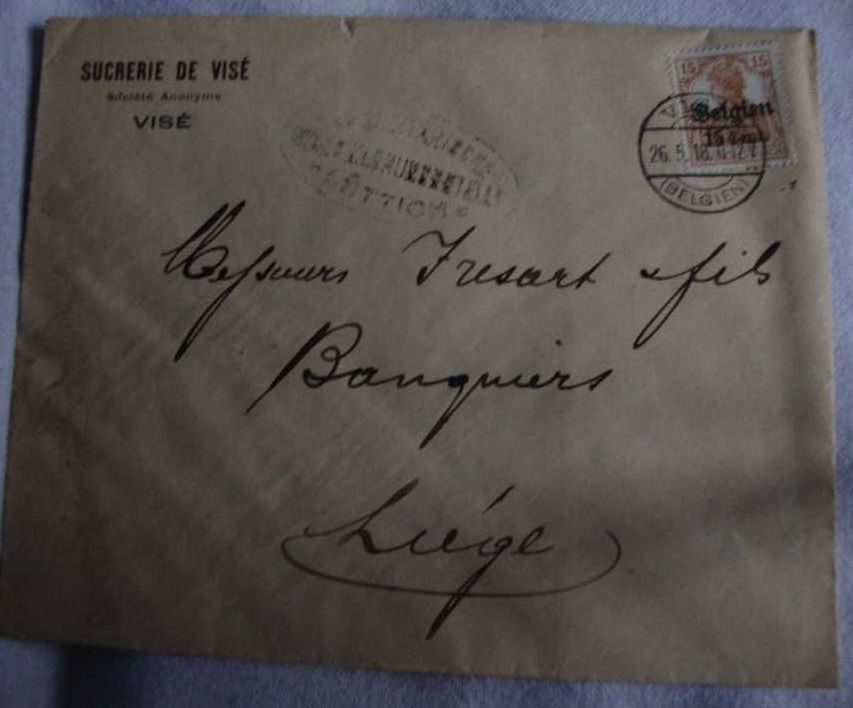 SUCRERIE DE VISÉ
Société Anonyme
VISÉ
15 15
Belgien
15 Cent.
26. 5. 18.
(BELGIEN)
LÜTTICH
Messieurs Fresart & fils
Banquiers
Liége